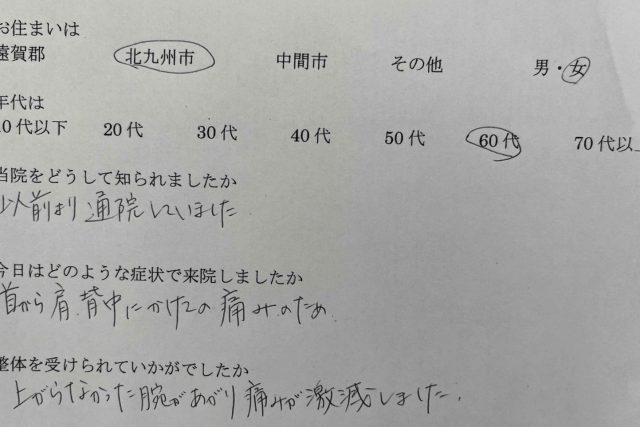 お住まいは
遠賀郡 北九州市 中間市 その他 男・女
年代は
10代以下 20代 30代 40代 50代 60代 70代以上
当院をどうして知られましたか
以前より通院していました
今日はどのような症状で来院しましたか
首から肩、背中にかけての痛みのため.
整体を受けられていかがでしたか
上がらなかった腕があがり痛みが激減しました.